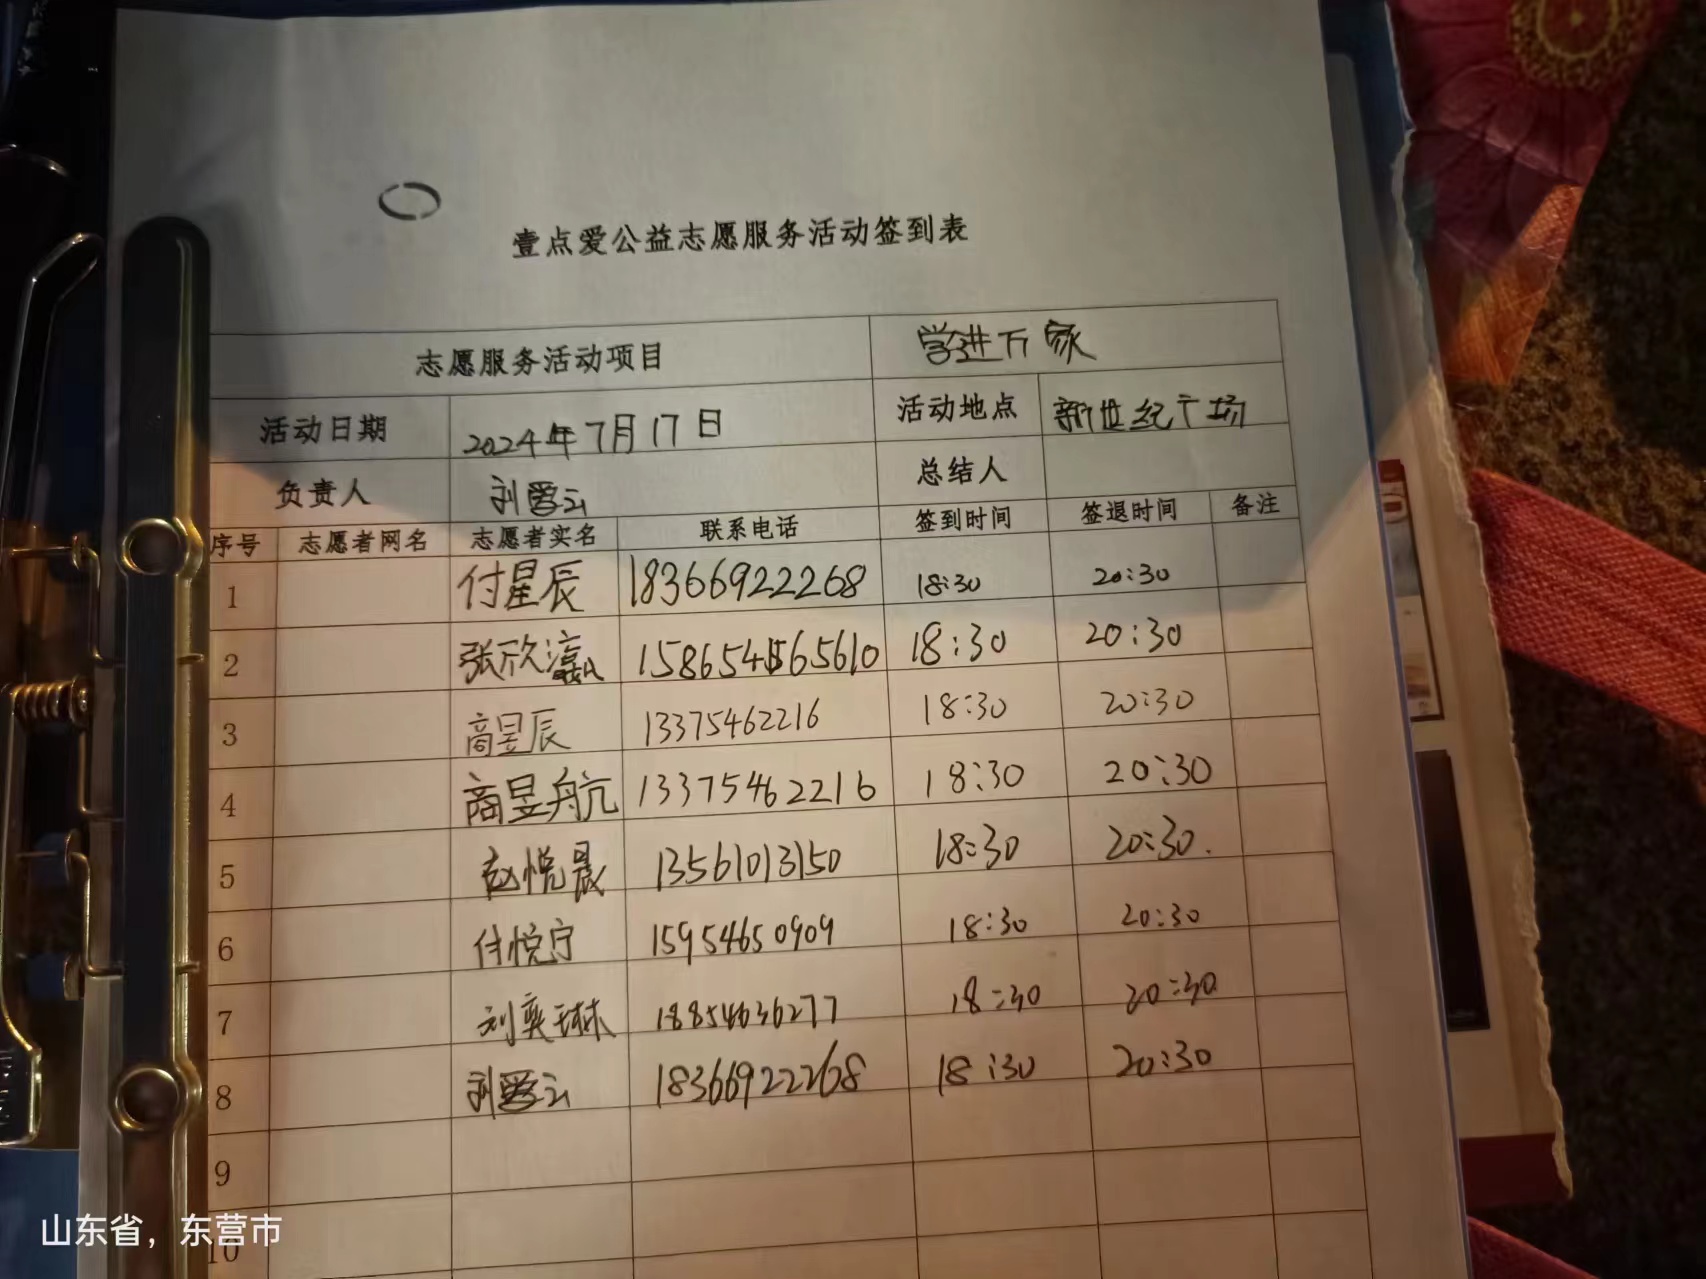 壹点爱公益志愿服务活动签到表
志愿服务活动项目 学进万家
活动日期 2024年7月17日 活动地点 新世纪广场
负责人 刘爱云 总结人
序号 志愿者网名 志愿者实名 联系电话 签到时间 签退时间 备注
1 付星辰 18366922268 18:30 20:30
2 张欣 18:30 20:30
3 商昱辰 13375462216 18:30 20:30
4 商昱航 13375462216 18:30 20:30
5 赵悦晟 13561013150 18:30 20:30.
6 付悦宁 15954650909 18:30 20:30
7 刘奕琳 18854636277 18:30 20:30
8 刘爱云 18366922268 18:30 20:30
9
10
山东省，东营市